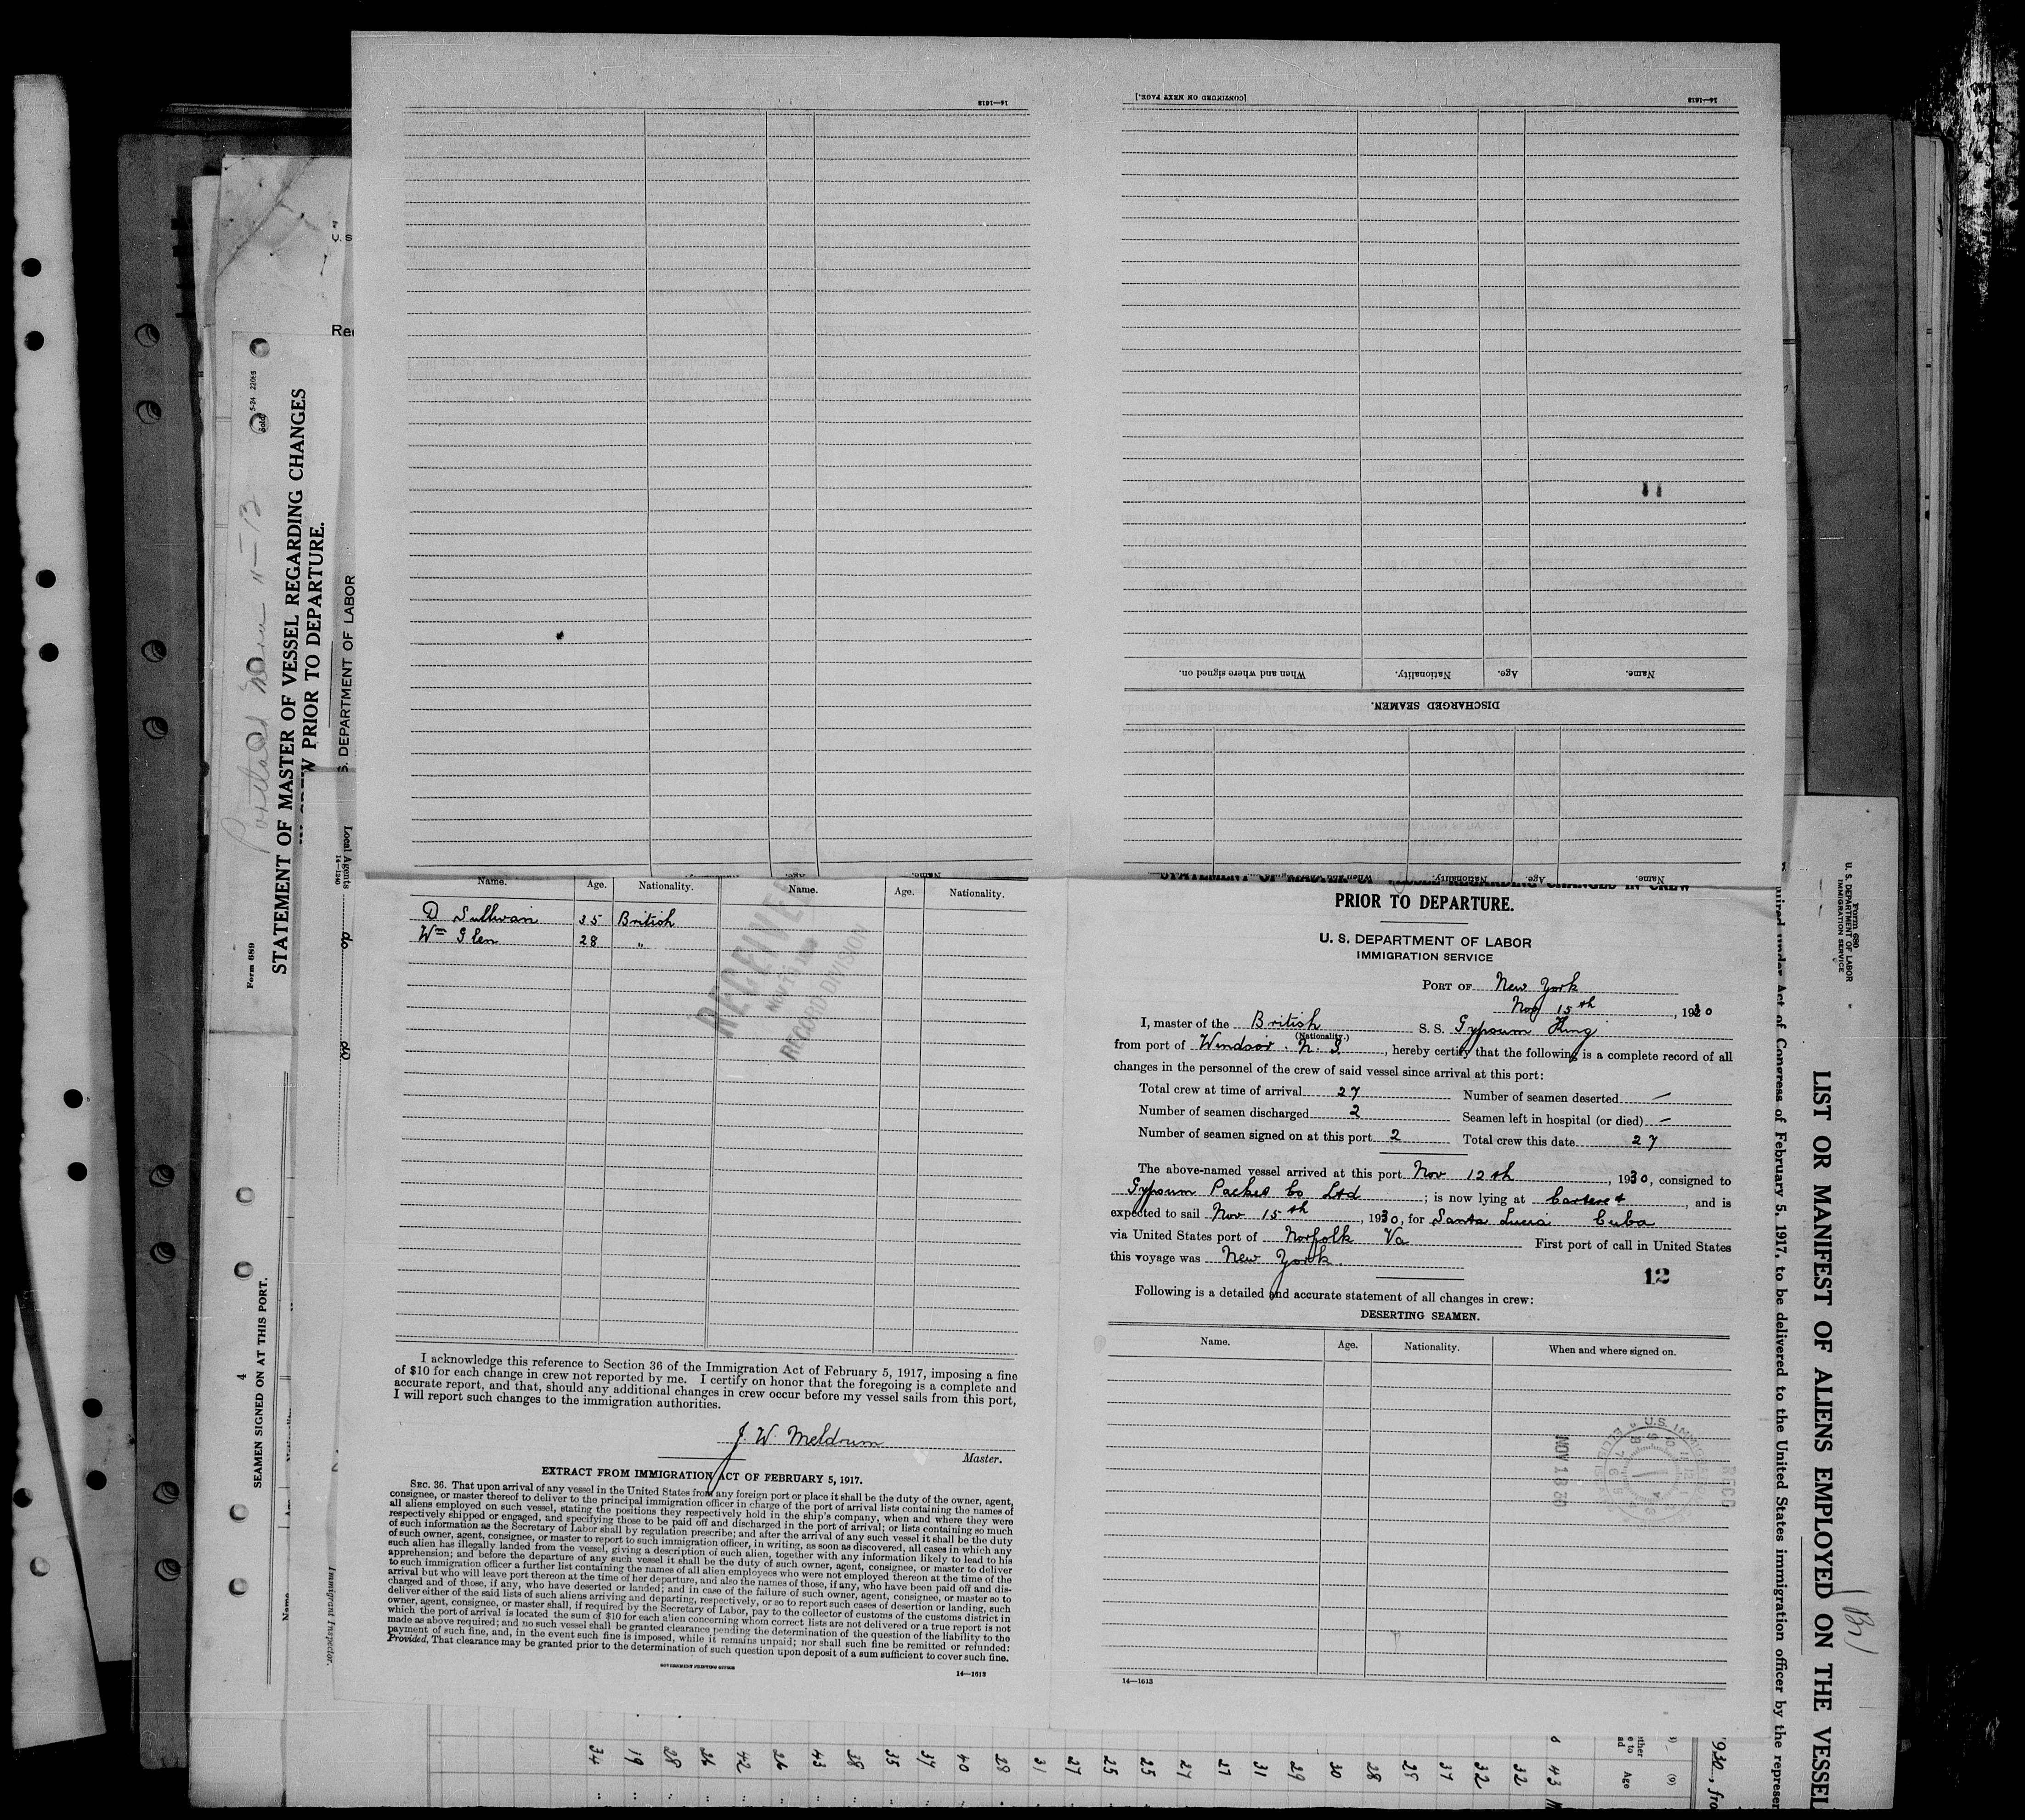 14—1613
[CONTINUED ON NEXT PAGE.]
14—1613
When and where signed on.
Nationality.
Age.
Name.
DISCHARGED SEAMEN.
Name. Age. Nationality. Name. Age. Nationality.
D Sullivan 35 British
Wm Glen 28 "
RECEIVED
RECORD DIVISION
I acknowledge this reference to Section 36 of the Immigration Act of February 5, 1917, imposing a fine
of $10 for each change in crew not reported by me. I certify on honor that the foregoing is a complete and
accurate report, and that, should any additional changes in crew occur before my vessel sails from this port,
I will report such changes to the immigration authorities.
J. W. Meldrum
Master.
EXTRACT FROM IMMIGRATION ACT OF FEBRUARY 5, 1917.
SEC. 36. That upon arrival of any vessel in the United States from any foreign port or place it shall be the duty of the owner, agent,
consignee, or master thereof to deliver to the principal immigration officer in charge of the port of arrival lists containing the names of
all aliens employed on such vessel, stating the positions they respectively hold in the ship's company, when and where they were
respectively shipped or engaged, and specifying those to be paid off and discharged in the port of arrival; or lists containing so much
of such information as the Secretary of Labor shall by regulation prescribe; and after the arrival of any such vessel it shall be the duty
of such owner, agent, consignee, or master to report to such immigration officer, in writing, as soon as discovered, all cases in which any
such alien has illegally landed from the vessel, giving a description of such alien, together with any information likely to lead to his
apprehension; and before the departure of any such vessel it shall be the duty of such owner, agent, consignee, or master to deliver
to such immigration officer a further list containing the names of all alien employees who were not employed thereon at the time of the
arrival but who will leave port thereon at the time of her departure, and also the names of those, if any, who have been paid off and dis-
charged and of those, if any, who have deserted or landed; and in case of the failure of such owner, agent, consignee, or master so to
deliver either of the said lists of such aliens arriving and departing, respectively, or so to report such cases of desertion or landing, such
owner, agent, consignee, or master shall, if required by the Secretary of Labor, pay to the collector of customs of the customs district in
which the port of arrival is located the sum of $10 for each alien concerning whom correct lists are not delivered or a true report is not
made as above required; and no such vessel shall be granted clearance pending the determination of the question of the liability to the
payment of such fine, and, in the event such fine is imposed, while it remains unpaid; nor shall such fine be remitted or refunded:
Provided, That clearance may be granted prior to the determination of such question upon deposit of a sum sufficient to cover such fine.
GOVERNMENT PRINTING OFFICE
14—1613
PRIOR TO DEPARTURE.
U. S. DEPARTMENT OF LABOR
IMMIGRATION SERVICE
PORT OF New York
Nov 15th, 1930
I, master of the British S. S. Gypsum King
(Nationality.)
from port of Windsor. N. S., hereby certify that the following is a complete record of all
changes in the personnel of the crew of said vessel since arrival at this port:
Total crew at time of arrival 27 Number of seamen deserted —
Number of seamen discharged 2 Seamen left in hospital (or died) —
Number of seamen signed on at this port 2 Total crew this date 27
The above-named vessel arrived at this port Nov 12th, 1930, consigned to
Gypsum Packet Co Ltd; is now lying at Carteret, and is
expected to sail Nov 15th, 1930, for Santa Lucia Cuba
via United States port of Norfolk Va First port of call in United States
this voyage was New York.
12
Following is a detailed and accurate statement of all changes in crew:
DESERTING SEAMEN.
Name. Age. Nationality. When and where signed on.
NOV 18 30
REC'D
14—1613
Form 689
STATEMENT OF MASTER OF VESSEL REGARDING CHANGES
PRIOR TO DEPARTURE.
S. DEPARTMENT OF LABOR
Local Agents
14—1240
do
do
4
SEAMEN SIGNED ON AT THIS PORT.
Name
Immigrant Inspector.
Form 680
U. S. DEPARTMENT OF LABOR
IMMIGRATION SERVICE
LIST OR MANIFEST OF ALIENS EMPLOYED ON THE VESSEL
under Act of Congress of February 5, 1917, to be delivered to the United States immigration officer by the represen
(Br)
Age
(9)
34 19 28 26 42 26 43 38 35 37 40 29 31 27 25 25 27 27 31 29 30 28 25 37 32 32 43